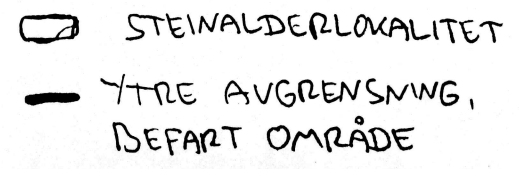 STEINALDERLOKALITET
YTRE AVGRENSNING,
BEFART OMRÅDE